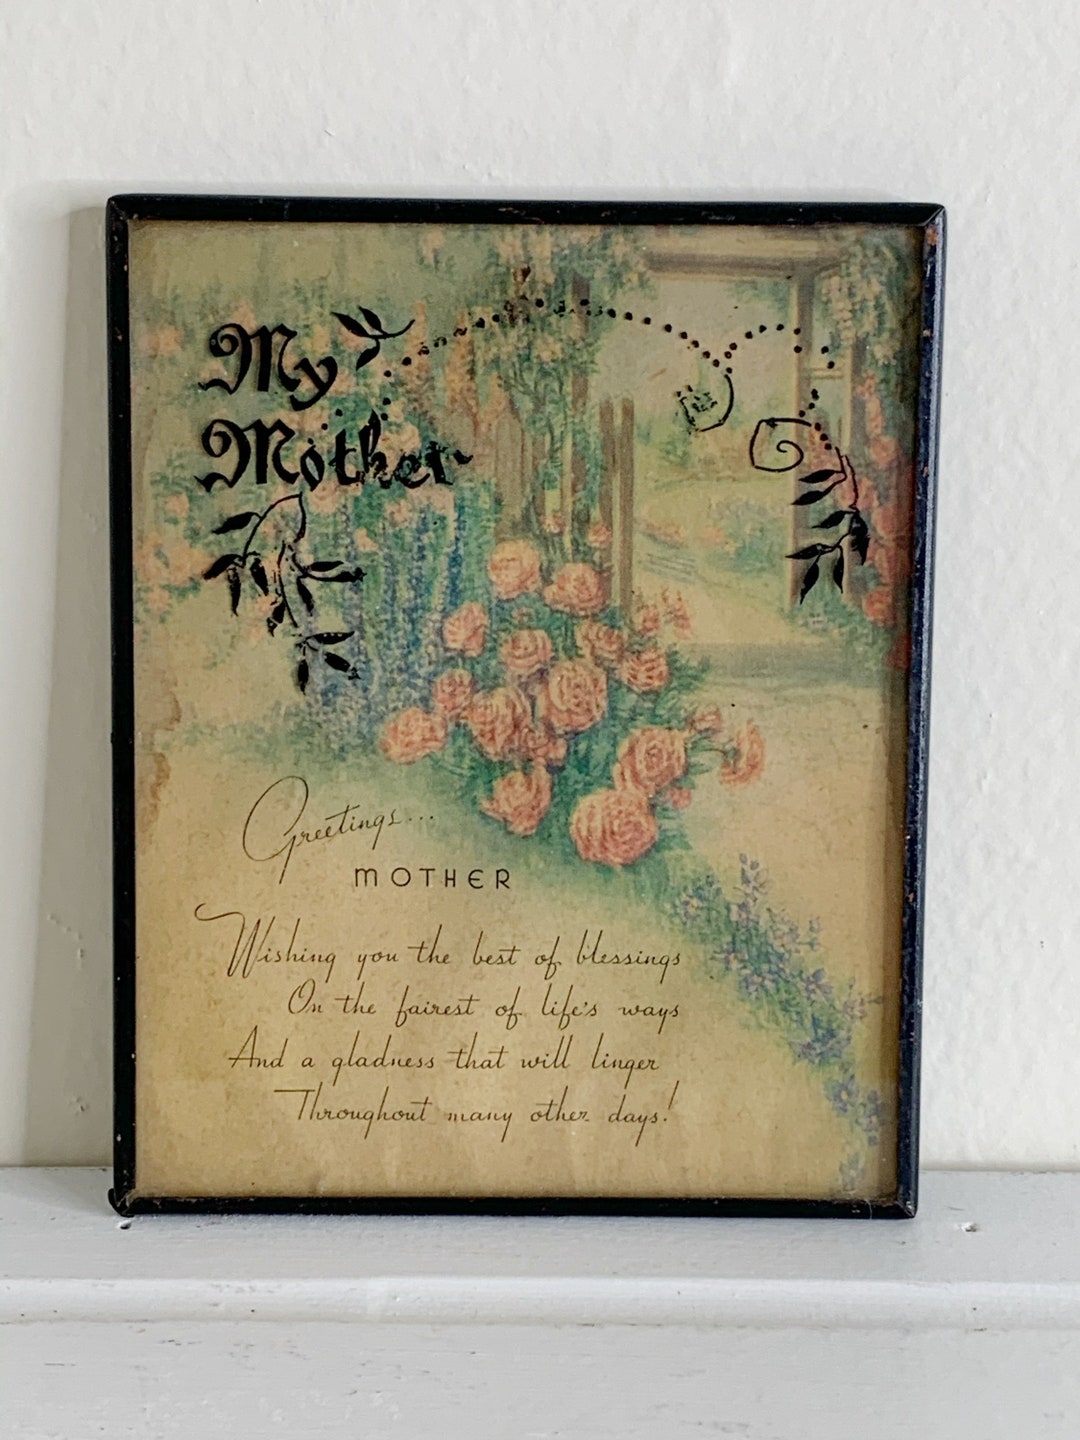 My
Mother
Greetings...
MOTHER
Wishing you the best of blessings
On the fairest of life's ways
And a gladness that will linger
Throughout many other days!